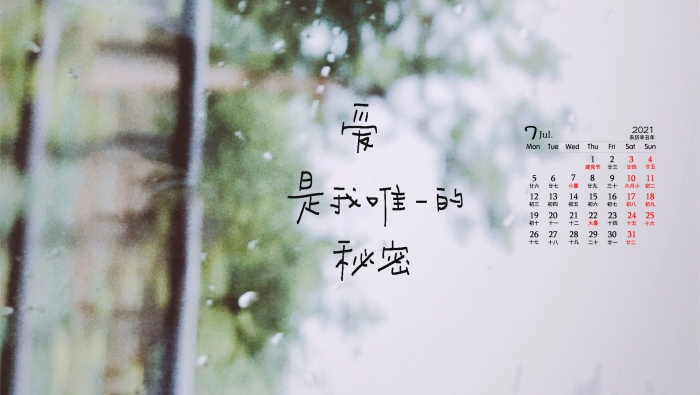 爱
是我唯一的
秘密
7 Jul. 2021
农历辛丑年
Mon Tue Wed Thu Fri Sat Sun
1 2 3 4
建党节 廿三 廿四 廿五
5 6 7 8 9 10 11
廿六 廿七 小暑 廿九 三十 六月小 初二
12 13 14 15 16 17 18
初三 初四 初五 初六 初七 初八 初九
19 20 21 22 23 24 25
初十 十一 十二 大暑 十四 十五 十六
26 27 28 29 30 31
十七 十八 十九 二十 廿一 廿二